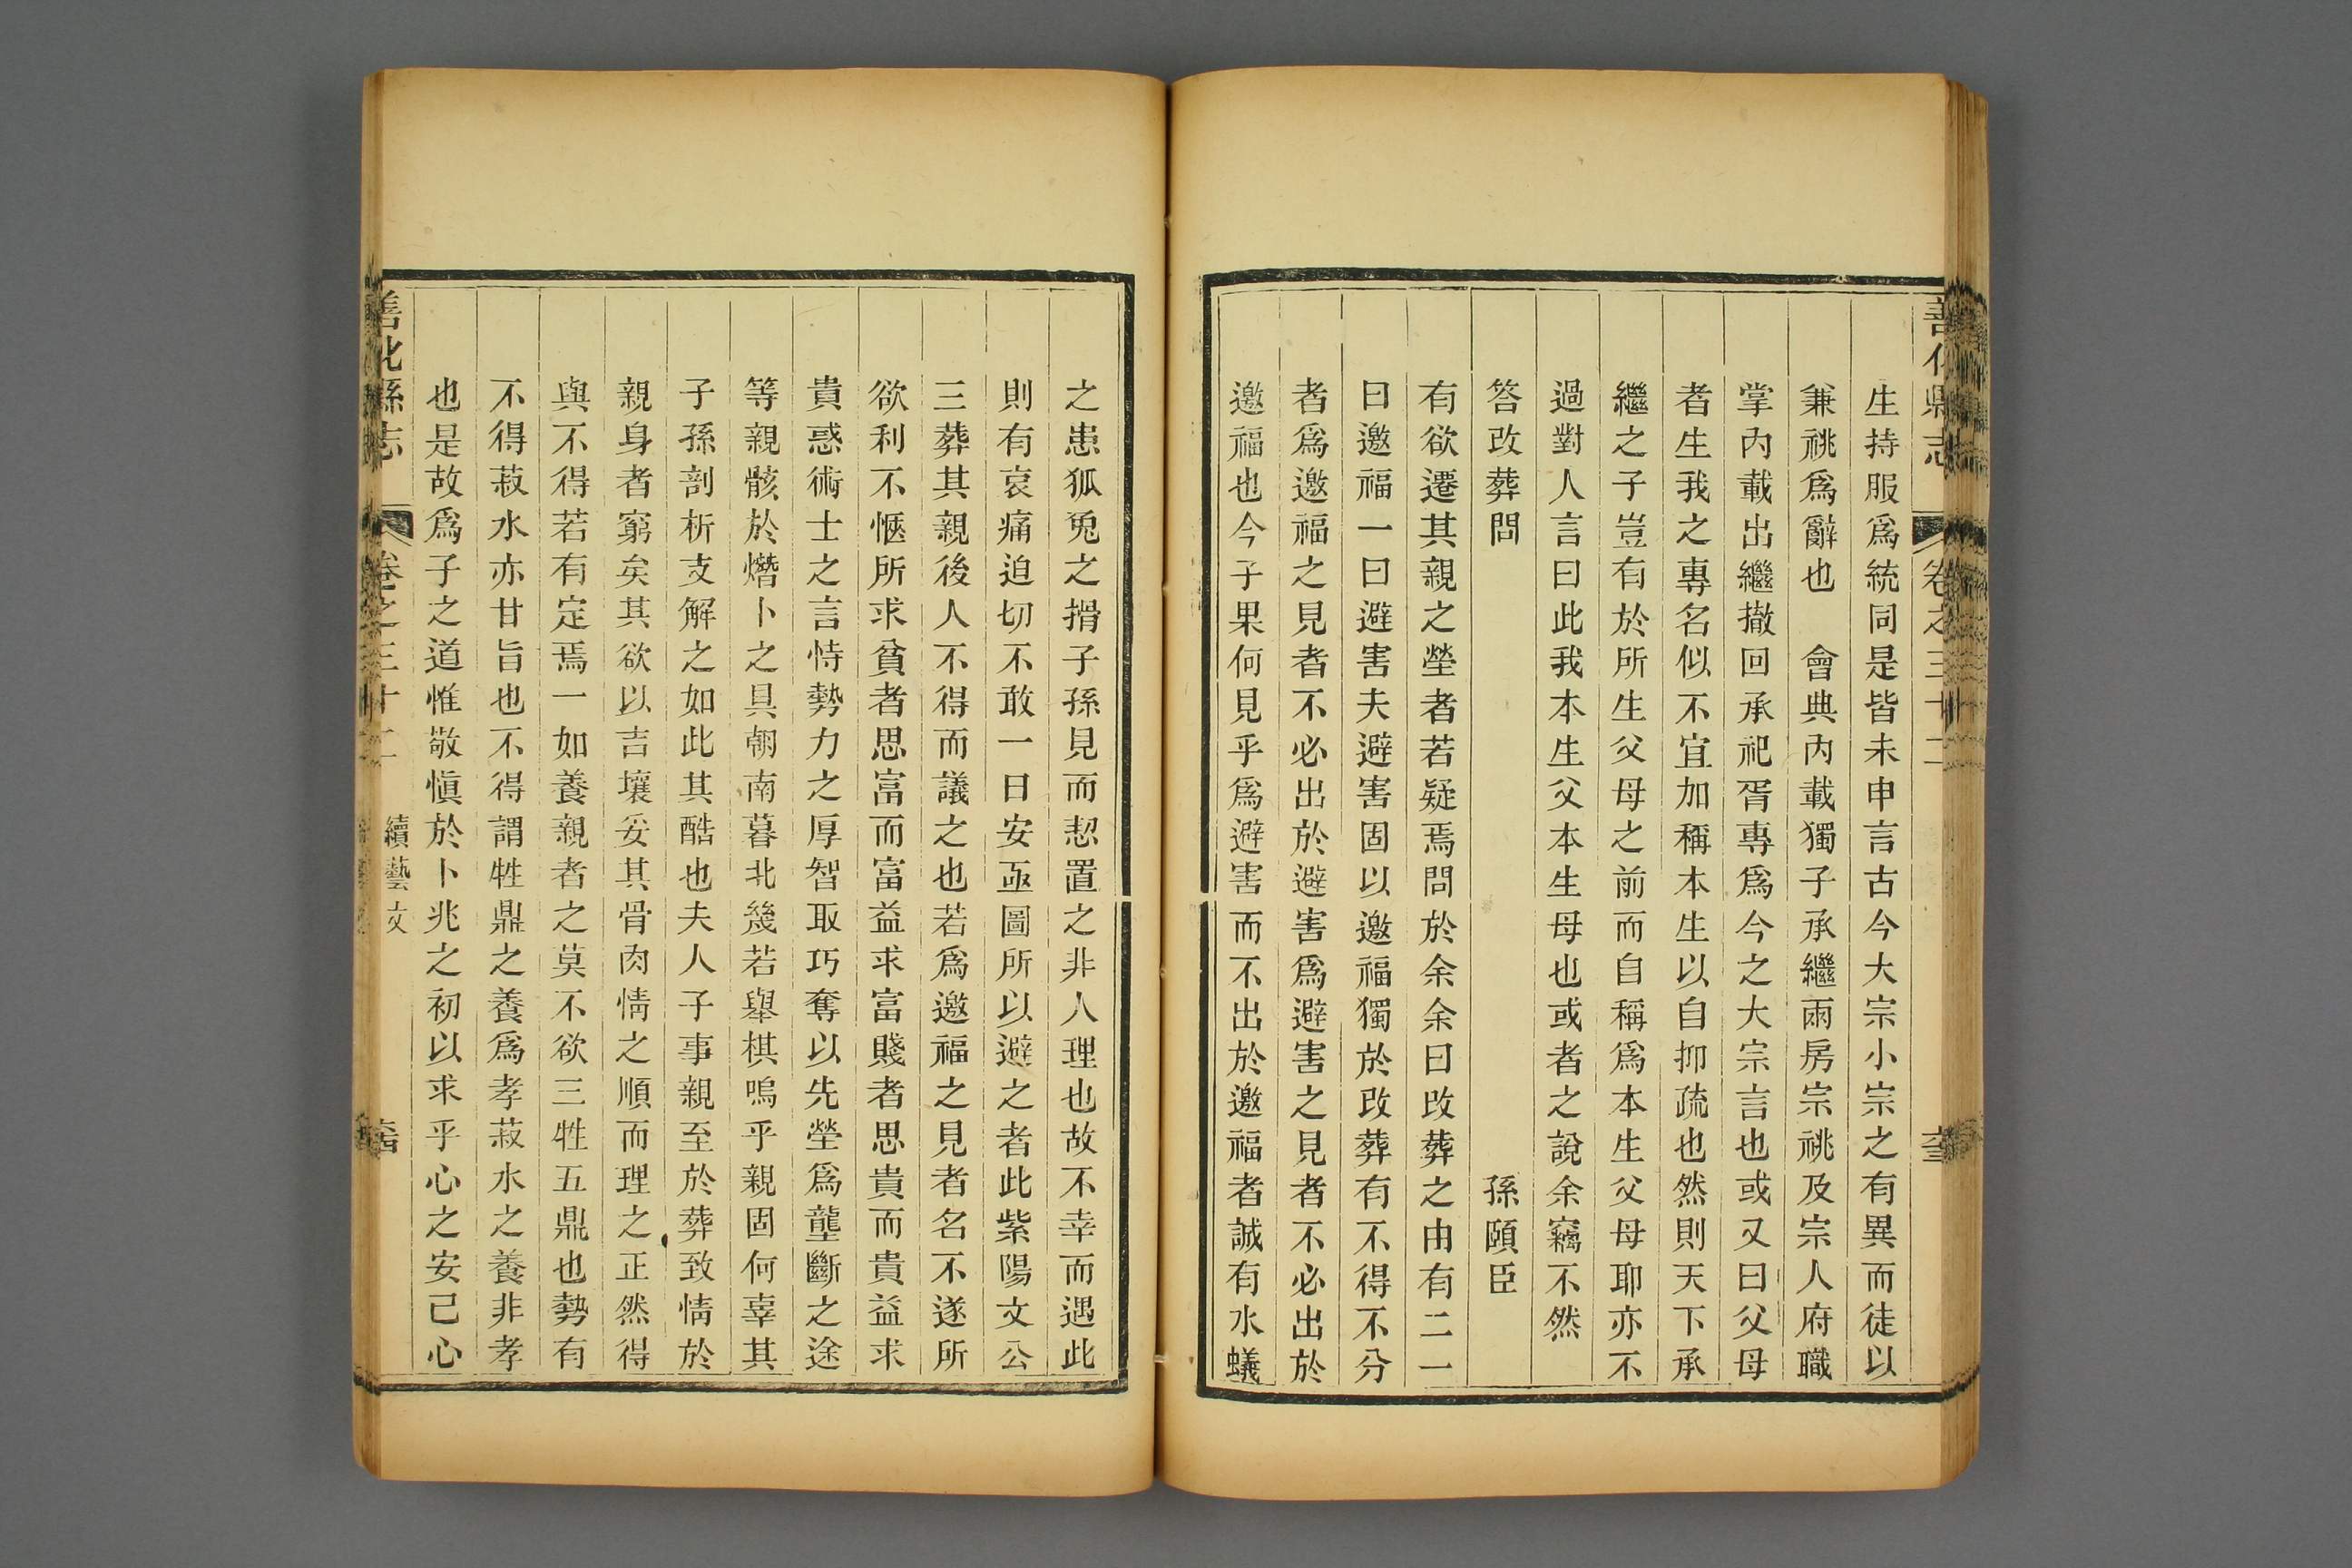 善化縣志
卷之三十二
生持服爲統同是皆未申言古今大宗小宗之有異而徒以
兼祧爲辭也　會典內載獨子承繼兩房宗祧及宗人府職
掌內載出繼撤回承祀胥專爲今之大宗言也或又曰父母
者生我之專名似不宜加稱本生以自抑疏也然則天下承
繼之子豈有於所生父母之前而自稱爲本生父母耶亦不
過對人言曰此我本生父本生母也或者之說余竊不然
答改葬問　孫頤臣
有欲遷其親之塋者若疑焉問於余余曰改葬之由有二一
曰邀福一曰避害夫避害固以邀福獨於改葬有不得不分
者爲邀福之見者不必出於避害爲避害之見者不必出於
邀福也今子果何見乎爲避害而不出於邀福者誠有水蟻
之患狐兎之搰子孫見而恝置之非人理也故不幸而遇此
則有哀痛迫切不敢一日安亟圖所以避之者此紫陽文公
三葬其親後人不得而議之也若爲邀福之見者名不遂所
欲利不愜所求貧者思富而富益求富賤者思貴而貴益求
貴惑術士之言恃勢力之厚智取巧奪以先塋爲壟斷之途
等親骸於𤏡卜之具朝南暮北幾若舉棋嗚乎親固何辜其
子孫剖析支解之如此其酷也夫人子事親至於葬致情於
親身者窮矣其欲以吉壤妥其骨肉情之順而理之正然得
與不得若有定焉一如養親者之莫不欲三牲五鼎也勢有
不得菽水亦甘旨也不得謂牲鼎之養爲孝菽水之養非孝
也是故爲子之道惟敬愼於卜兆之初以求乎心之安已心
善化縣志
卷之三十二
續藝文